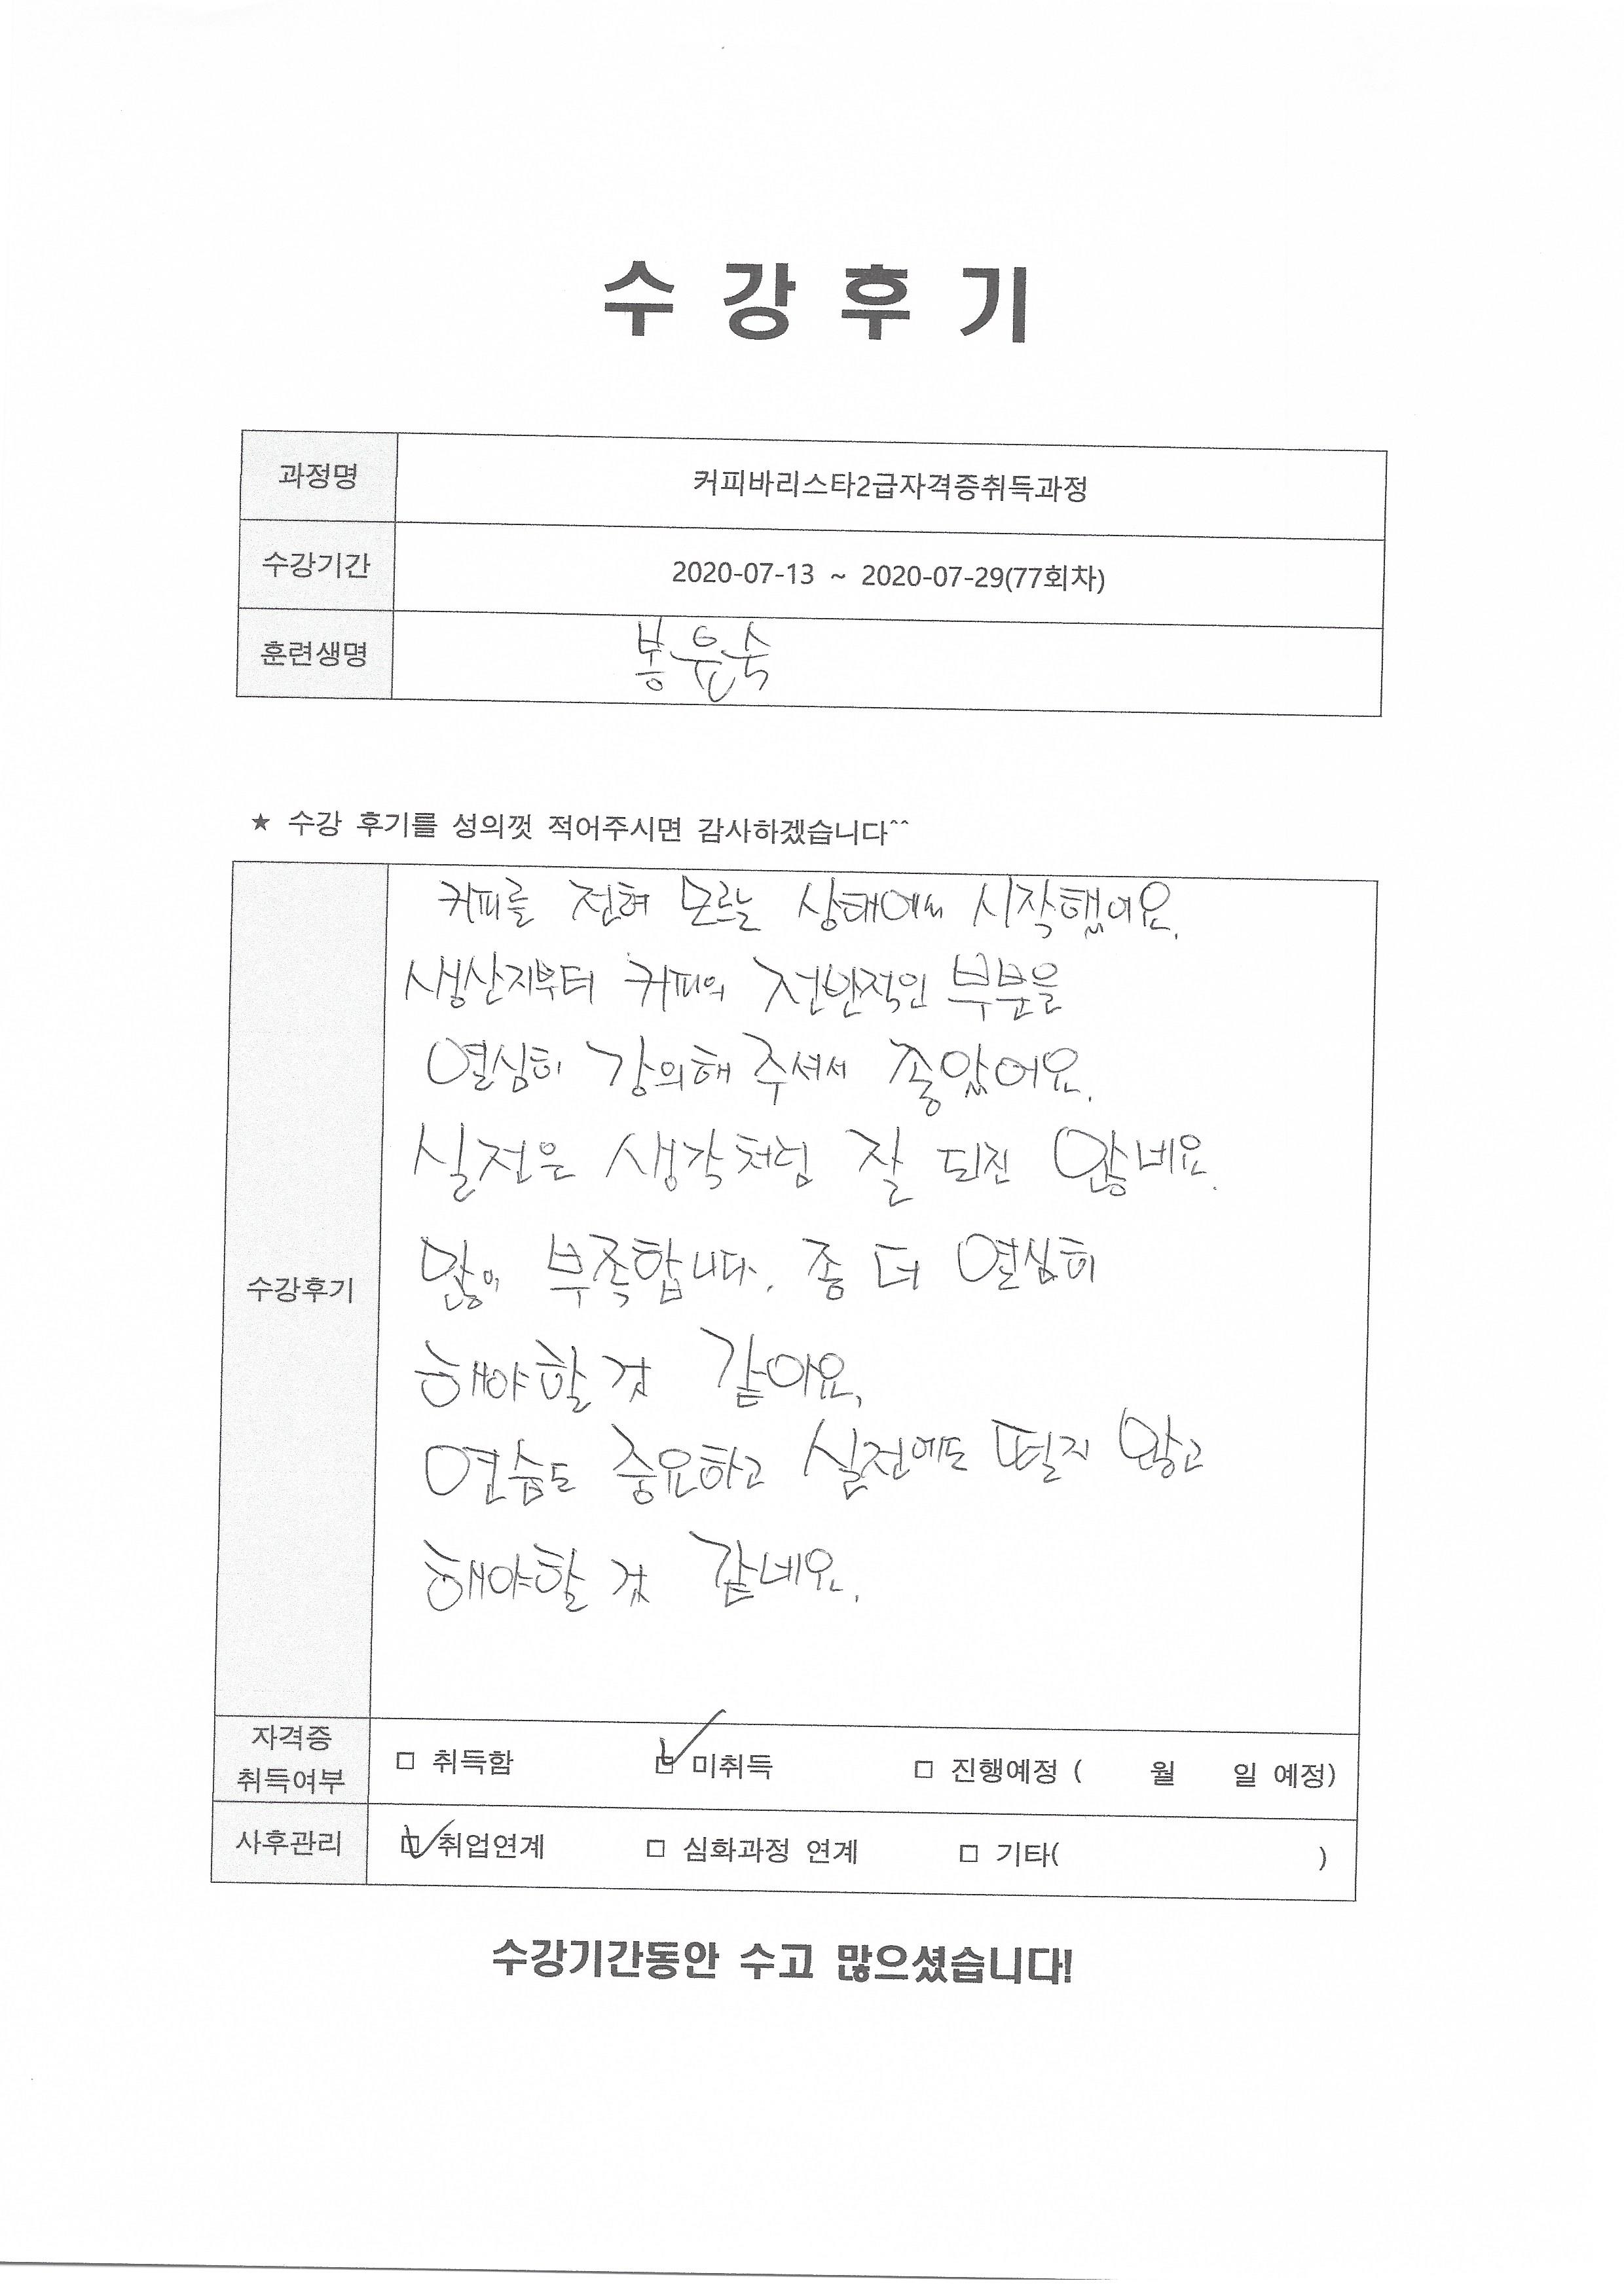 수 강 후 기
과정명 커피바리스타2급자격증취득과정
수강기간 2020-07-13 ~ 2020-07-29(77회차)
훈련생명 봉윤숙
★ 수강 후기를 성의껏 적어주시면 감사하겠습니다^^
커피를 전혀 모르는 상태에서 시작했어요.
생산지부터 커피의 전반적인 부분을
열심히 강의해 주셔서 좋았어요.
실전은 생각처럼 잘 되진 않네요.
많이 부족합니다. 좀 더 열심히
수강후기
해야할 것 같아요.
연습도 중요하고 실전에도 떨지 않고
해야할 것 같네요.
자격증
취득여부 □ 취득함 ☑ 미취득 □ 진행예정 ( 월 일 예정)
사후관리 ☑ 취업연계 □ 심화과정 연계 □ 기타( )
수강기간동안 수고 많으셨습니다!